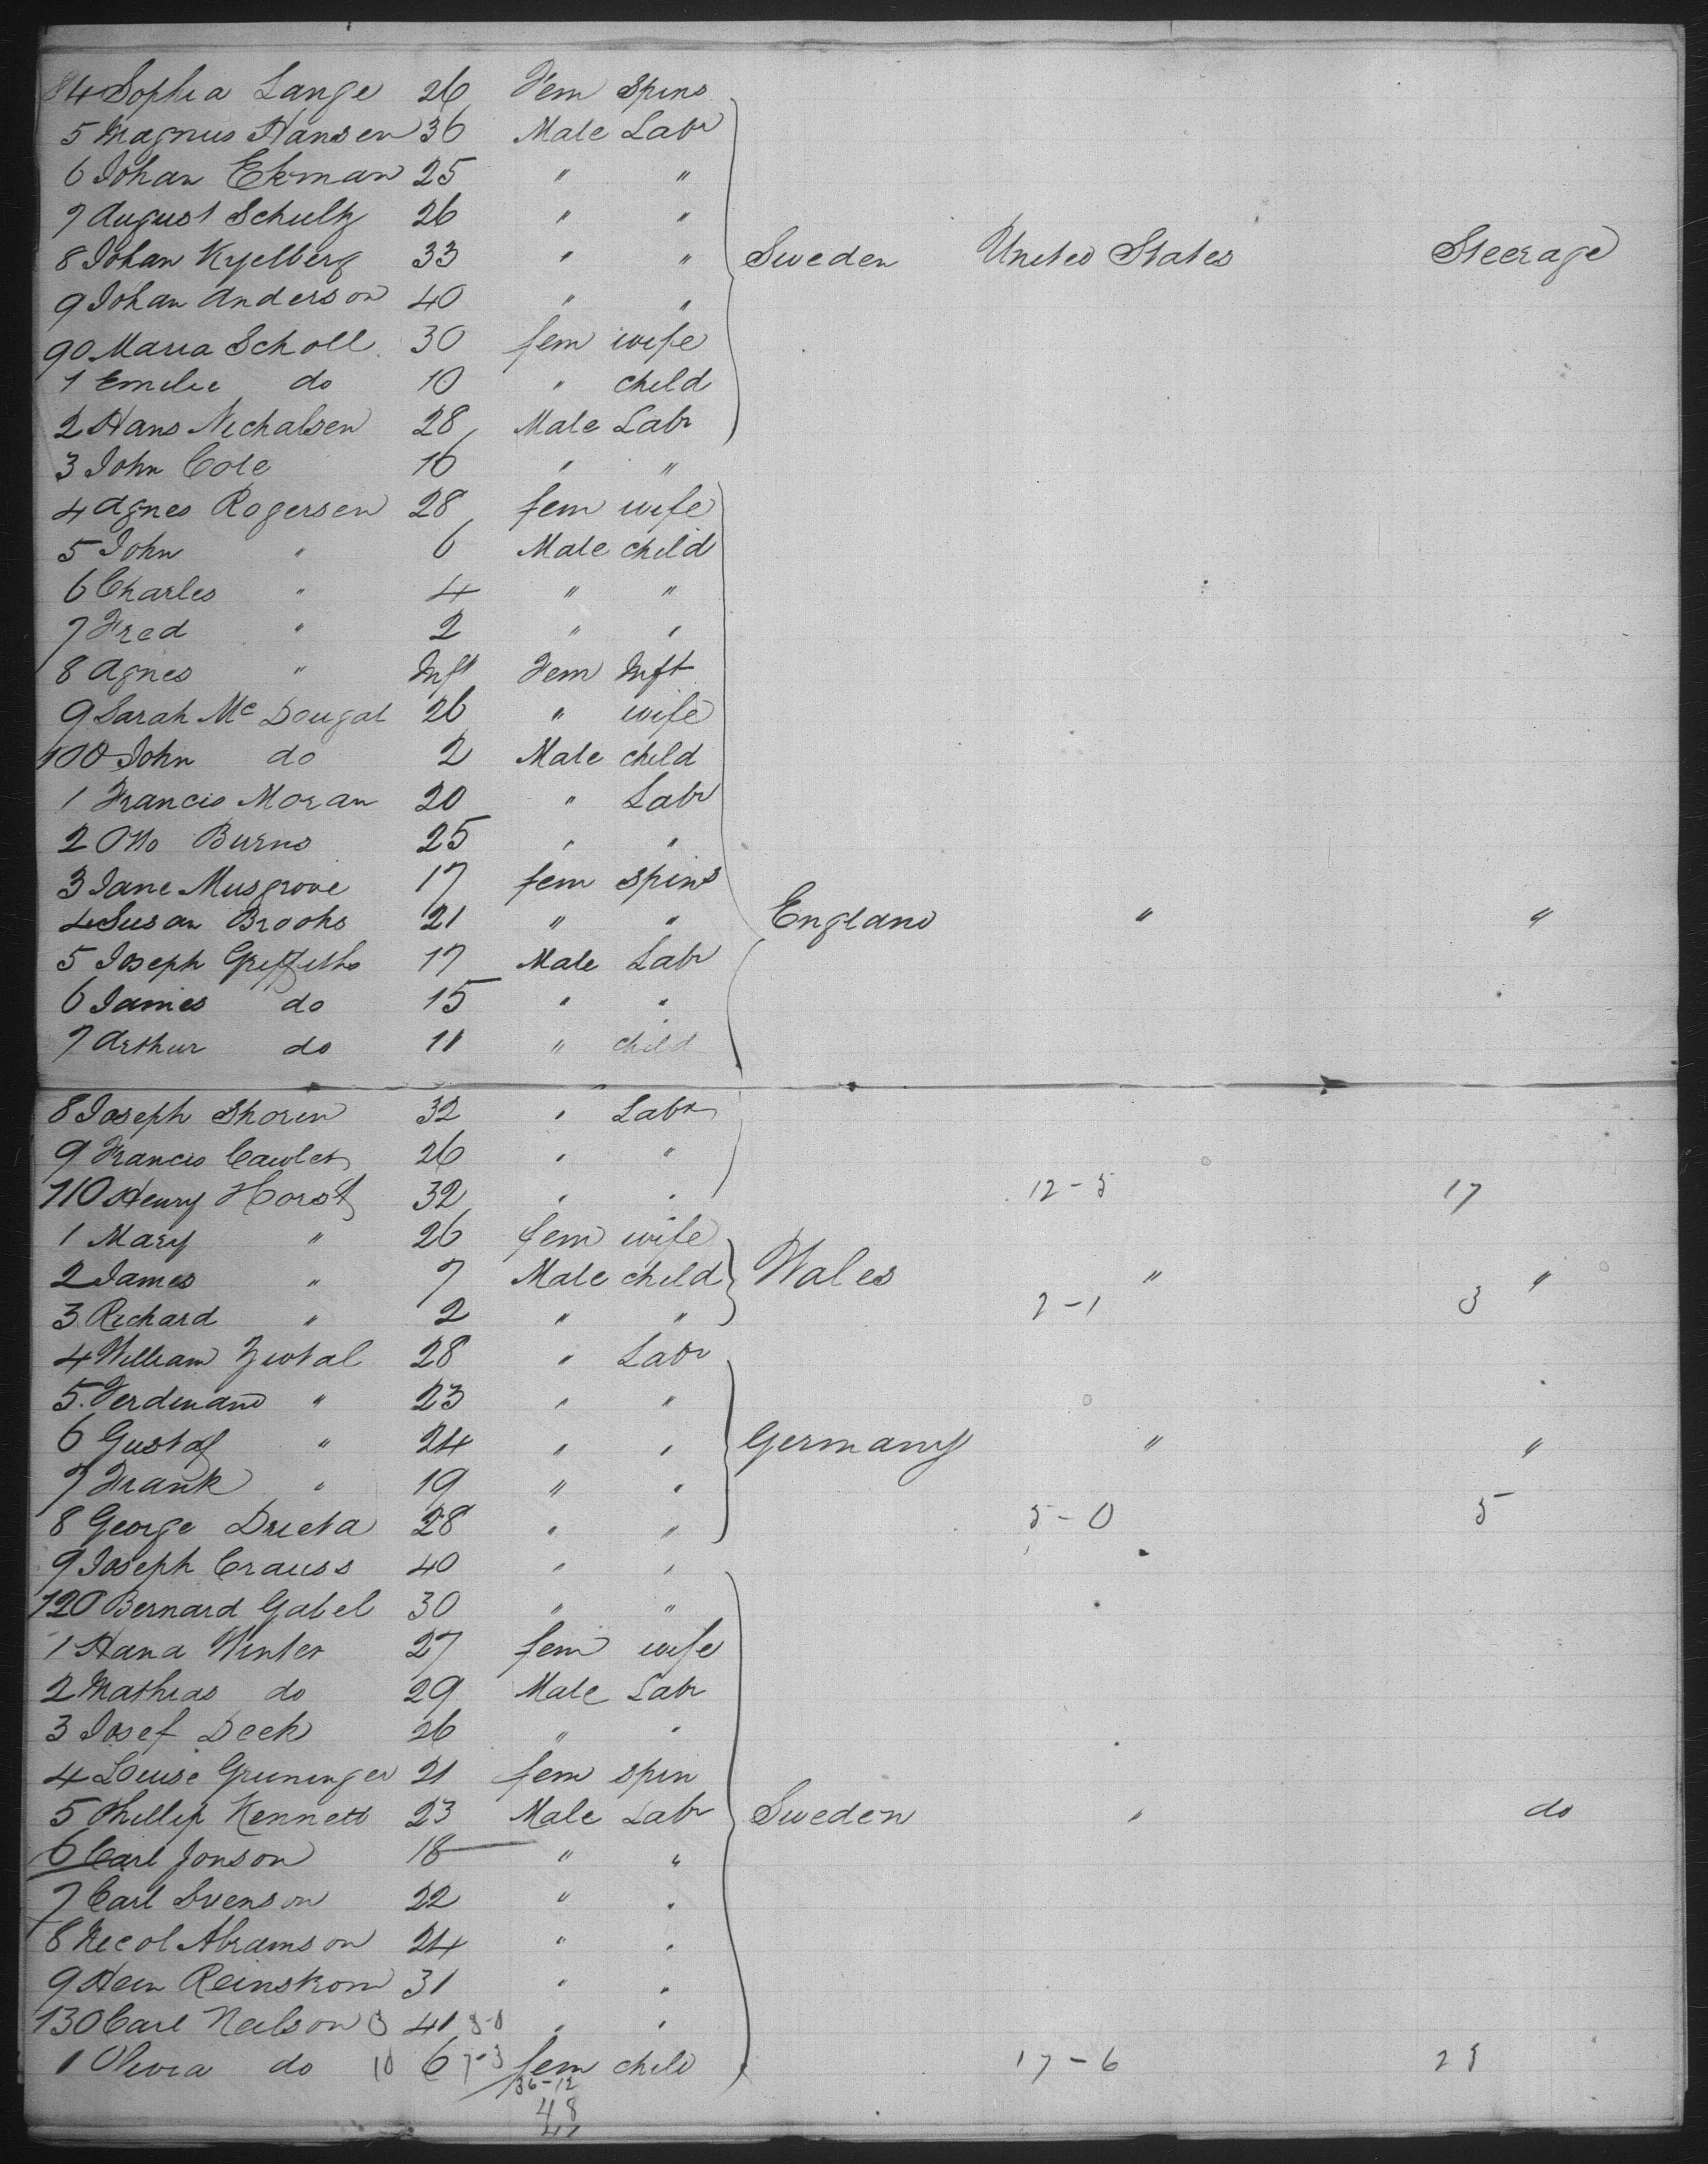 84 Sophia Lange 26 Fem Spins
5 Magnus Hansen 36 Male Labr
6 Johan Ekman 25 " "
7 August Schultz 26 " "
8 Johan Kyelberg 33 " " Sweden United States Steerage
9 Johan Anderson 40 " "
90 Maria Scholl 30 fem wife
1 Emelie do 10 " child
2 Hans Nichalsen 28 Male Labr
3 John Cole 16 " "
4 Agnes Rogersen 28 fem wife
5 John " 6 Male child
6 Charles " 4 " "
7 Fred " 2 " "
8 Agnes " Inft Fem Inft
9 Sarah Mc Dougal 26 " wife
100 John do 2 Male child
1 Francis Moran 20 " Labr
2 Otto Burns 25 " "
3 Jane Musgrove 17 fem spins
4 Susan Brooks 21 " " England " "
5 Joseph Griffiths 17 Male Labr
6 James do 15 " "
7 Arthur do 11 " child
8 Joseph Shoren 32 " Labr
9 Francis 26 " "
110 Henry Horst 32 " " 12-5 17
1 Mary " 26 fem wife
2 James " 7 Male child Wales " "
3 Richard " 2 " " 2-1 3
4 William 28 " Labr
5 Ferdinand " 23 " "
6 Gustaf " 24 " " Germany " "
7 Frank " 19 " "
8 George Drieta 28 " " 5-0 5
9 Joseph Crauss 40 " "
120 Bernard Gabel 30 " "
1 Hana Winter 27 fem wife
2 Mathias do 29 Male Labr
3 Josef Deck 26 " "
4 Louise Gruninger 21 fem spin
5 Phillip Kennett 23 Male Labr Sweden " do
6 Carl Jonson 18 " "
7 Carl Svenson 22 " "
8 Necol Abramson 24 " "
9 Hein Reinstrom 31 " "
130 Carl Neilson 3 41 " "
1 Olivia do 10 6 7-3 fem child 17-6 23
36-12
48